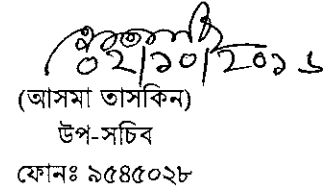 ০২/১০/২০১৬
(আসমা তাসকিন)
উপ-সচিব
ফোনঃ ৯৫৪৫০২৮